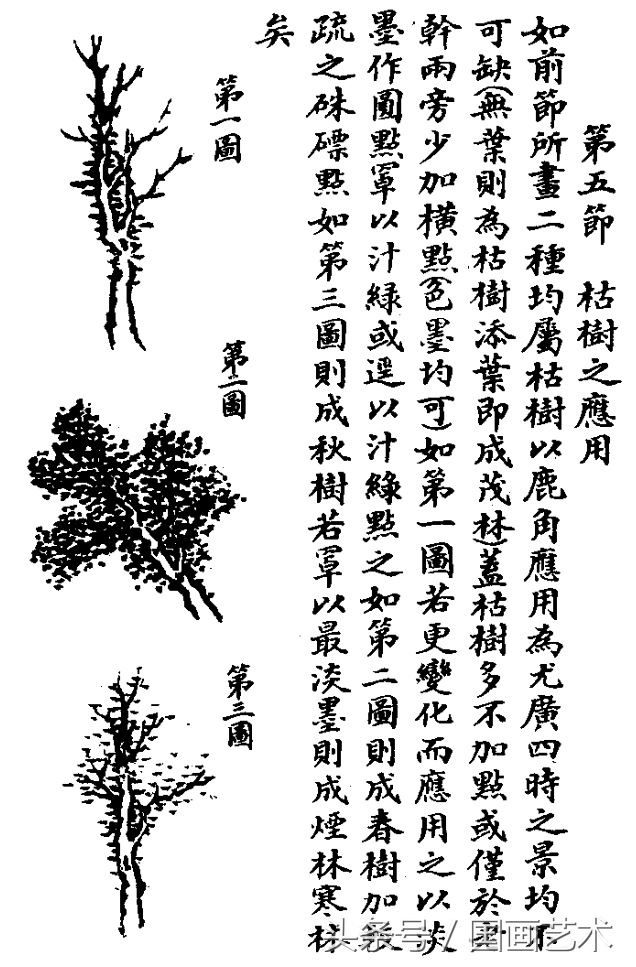 第五節　枯樹之應用
如前節所畫二種均屬枯樹以鹿角應用為尤廣四時之景均不
可缺(無葉則為枯樹添葉即成茂林)蓋枯樹多不加點或僅於
幹兩旁少加橫點(色墨均可)如第一圖若更變化而應用之以淡
墨作圓點罩以汁綠或逕以汁綠點之如第二圖則成春樹加
疏之硃磦點如第三圖則成秋樹若罩以最淡墨則成煙林寒林
矣
第一圖
第二圖
第三圖
头条号 / 国画艺术